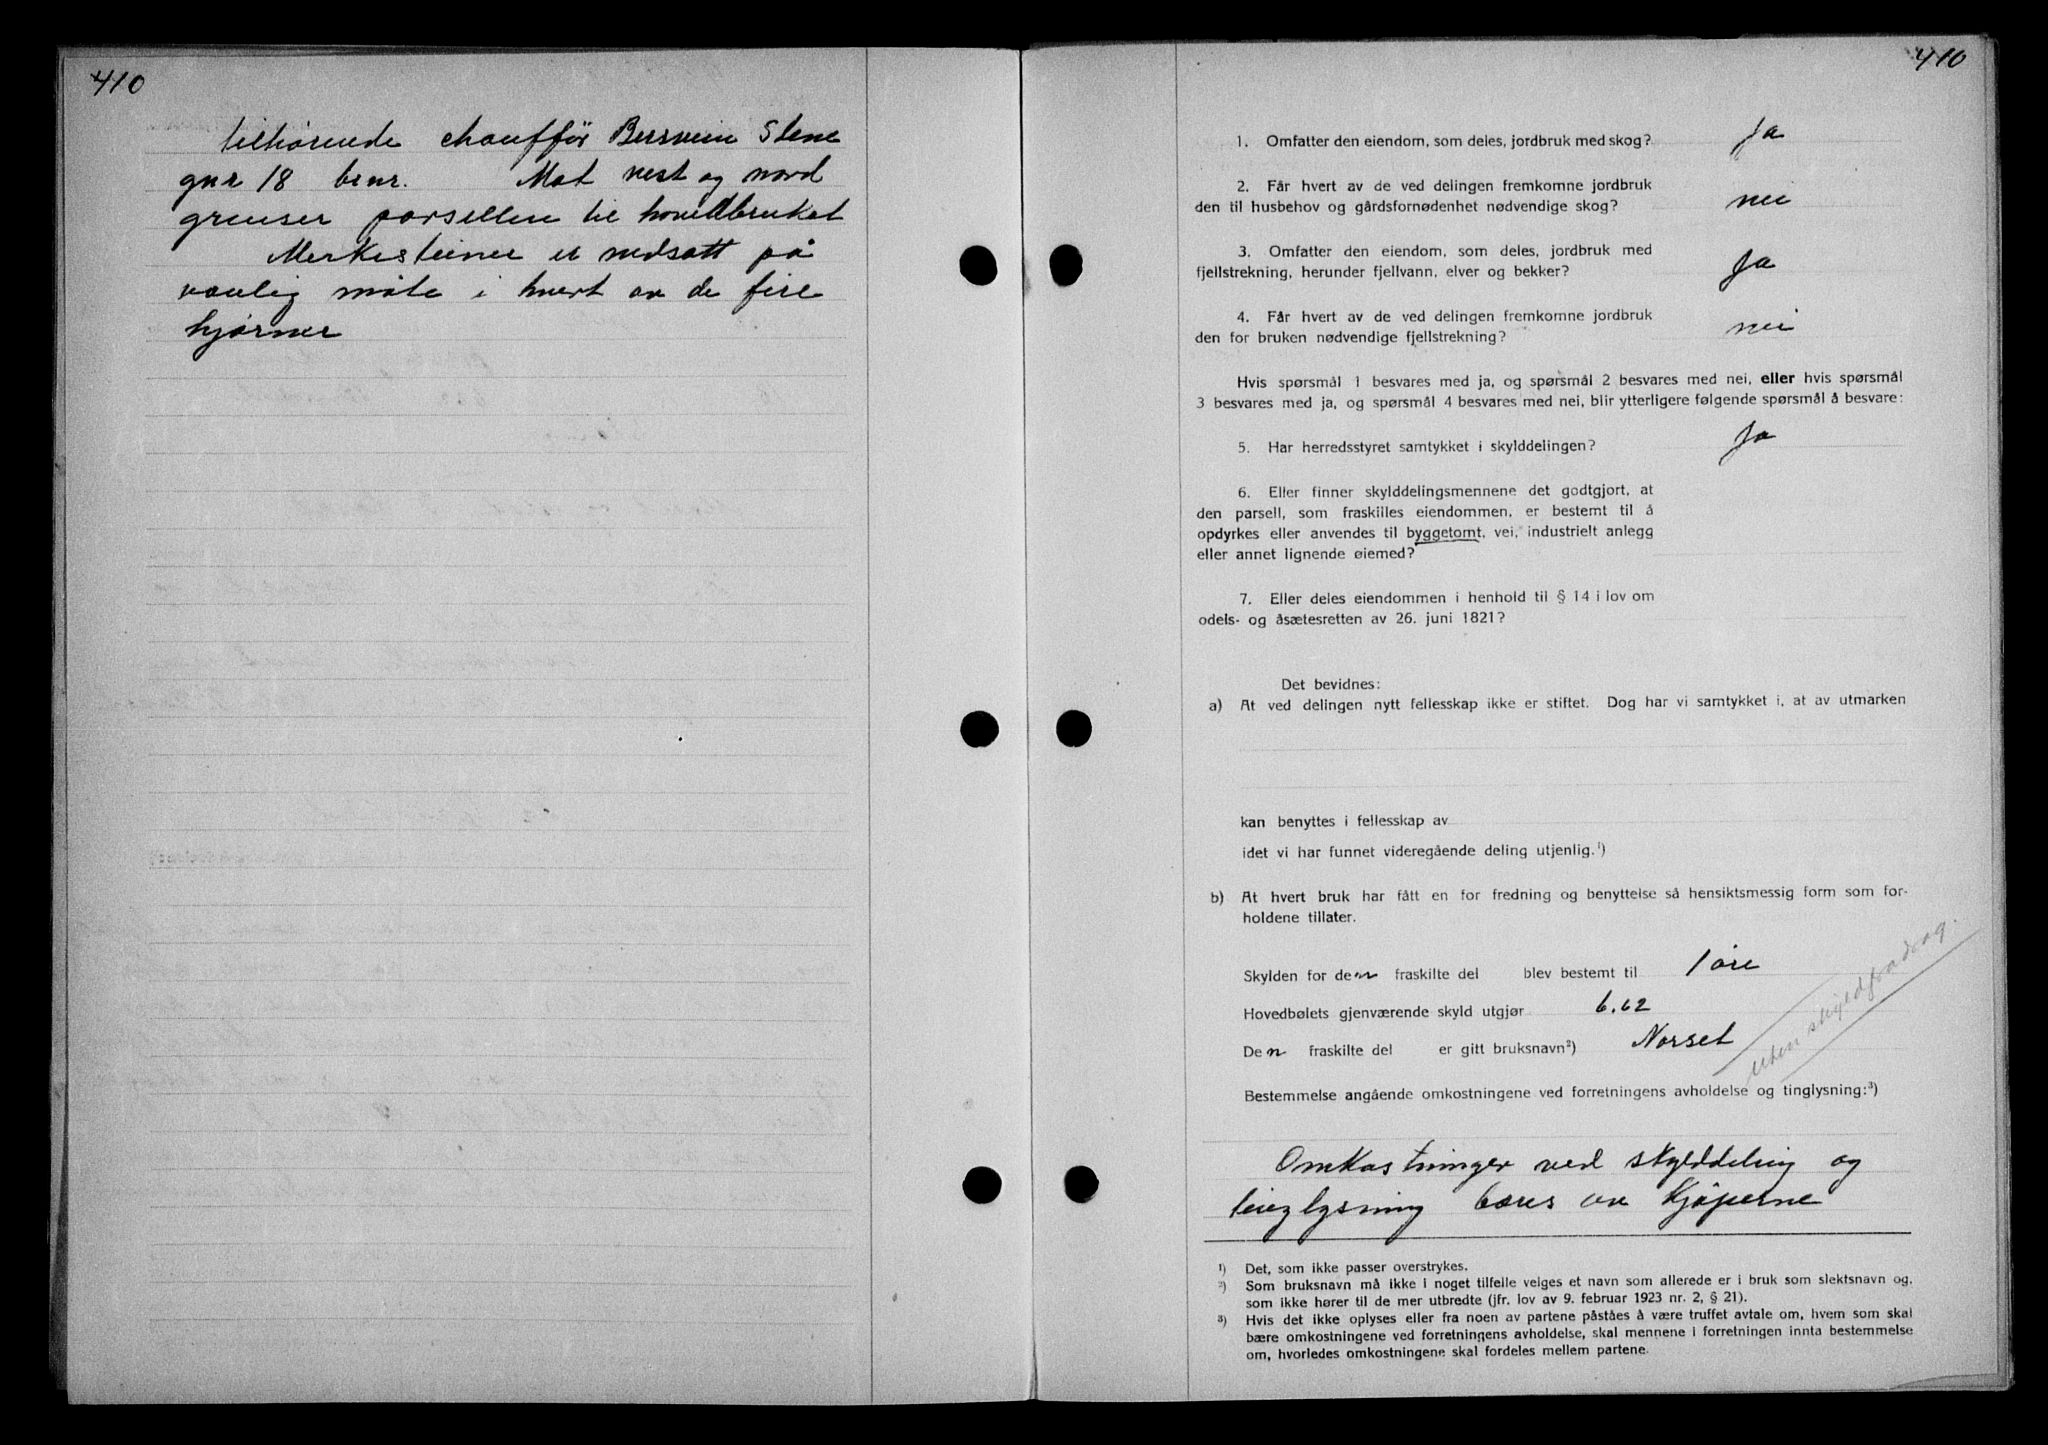 410
tilhørende chauffør Bersvein Stene
gnr 18 brnr. Mot vest og nord
grenser parsellen til hovedbruket
Merkesteiner er nedsatt på
vanlig måte i hvert av de fire
hjørner
410
1. Omfatter den eiendom, som deles, jordbruk med skog? Ja
2. Får hvert av de ved delingen fremkomne jordbruk
den til husbehov og gårdsfornødenhet nødvendige skog? nei
3. Omfatter den eiendom, som deles, jordbruk med
fjellstrekning, herunder fjellvann, elver og bekker? Ja
4. Får hvert av de ved delingen fremkomne jordbruk
den for bruken nødvendige fjellstrekning? nei
Hvis spørsmål 1 besvares med ja, og spørsmål 2 besvares med nei, eller hvis spørsmål
3 besvares med ja, og spørsmål 4 besvares med nei, blir ytterligere følgende spørsmål å besvare:
5. Har herredsstyret samtykket i skylddelingen? Ja
6. Eller finner skylddelingsmennene det godtgjort, at
den parsell, som fraskilles eiendommen, er bestemt til å
opdyrkes eller anvendes til byggetomt, vei, industrielt anlegg
eller annet lignende øiemed?
7. Eller deles eiendommen i henhold til § 14 i lov om
odels- og åsætesretten av 26. juni 1821?
Det bevidnes:
a) At ved delingen nytt fellesskap ikke er stiftet. Dog har vi samtykket i, at av utmarken
kan benyttes i fellesskap av
idet vi har funnet videregående deling utjenlig.¹)
b) At hvert bruk har fått en for fredning og benyttelse så hensiktsmessig form som for-
holdene tillater.
Skylden for den fraskilte del blev bestemt til 1 øre
Hovedbølets gjenværende skyld utgjør 6.62
Den fraskilte del er gitt bruksnavn²) Norset
uten skyldfradrag.
Bestemmelse angående omkostningene ved forretningens avholdelse og tinglysning:³)
Omkostninger ved skylddeling og
tinglysning bæres av kjøperne
¹) Det, som ikke passer overstrykes.
²) Som bruksnavn må ikke i noget tilfelle velges et navn som allerede er i bruk som slektsnavn og,
som ikke hører til de mer utbredte (jfr. lov av 9. februar 1923 nr. 2, § 21).
³) Hvis det ikke oplyses eller fra noen av partene påståes å være truffet avtale om, hvem som skal
bære omkostningene ved forretningens avholdelse, skal mennene i forretningen innta bestemmelse
om, hvorledes omkostningene skal fordeles mellem partene.